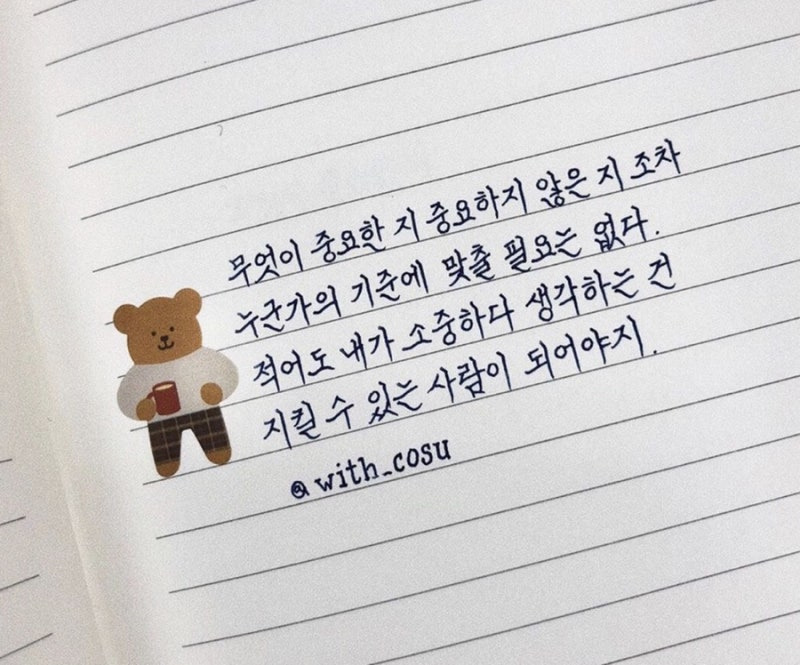 무엇이 중요한 지 중요하지 않은 지 조차
누군가의 기준에 맞출 필요는 없다.
적어도 내가 소중하다 생각하는 건
지킬 수 있는 사람이 되어야지.
@with_cosu